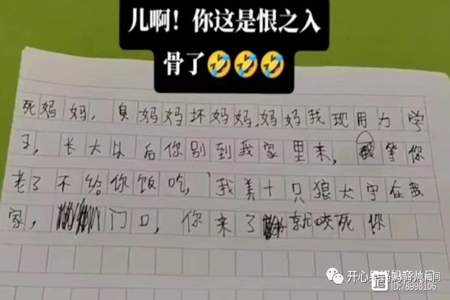 儿啊！你这是恨之入
骨了🤣🤣🤣
死妈妈，臭妈妈坏妈妈，妈妈我现用力学
习，长大以后你别到我家里来，等你
老了不给你饭吃，我养十只狼犬守在我
家，门口，你来了就咬死你
开心
ID:78998106